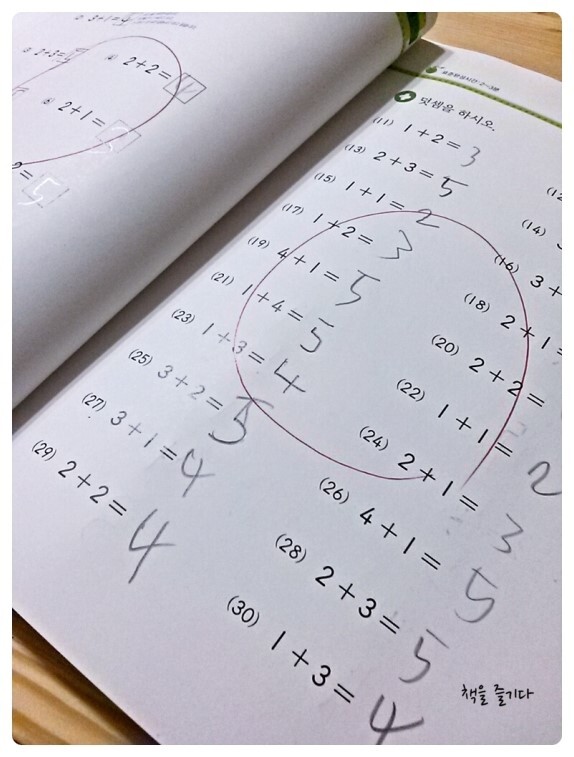 2+2=4
2+1=3
덧셈을 하시오.
(11) 1+2=3
(13) 2+3=5
(15) 1+1=2
(17) 1+2=3
(19) 4+1=5
(21) 1+4=5
(23) 1+3=4
(25) 3+2=5
(27) 3+1=4
(29) 2+2=4
(14)
(16) 3+
(18) 2+1=
(20) 2+2=
(22) 1+1=2
(24) 2+1=3
(26) 4+1=5
(28) 2+3=5
(30) 1+3=4
책을 즐기다